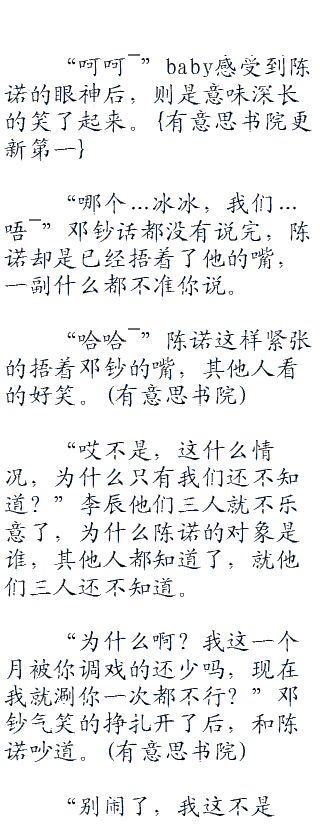 “呵呵¯”baby感受到陈
诺的眼神后，则是意味深长
的笑了起来。{有意思书院更
新第一}
“哪个…冰冰，我们…
唔¯”邓钞话都没有说完，陈
诺却是已经捂着了他的嘴，
一副什么都不准你说。
“哈哈¯”陈诺这样紧张
的捂着邓钞的嘴，其他人看
的好笑。(有意思书院)
“哎不是，这什么情
况，为什么只有我们还不知
道？”李辰他们三人就不乐
意了，为什么陈诺的对象是
谁，其他人都知道了，就他
们三人还不知道。
“为什么啊？我这一个
月被你调戏的还少吗，现在
我就涮你一次都不行？”邓
钞气笑的挣扎开了后，和陈
诺吵道。(有意思书院)
“别闹了，我这不是